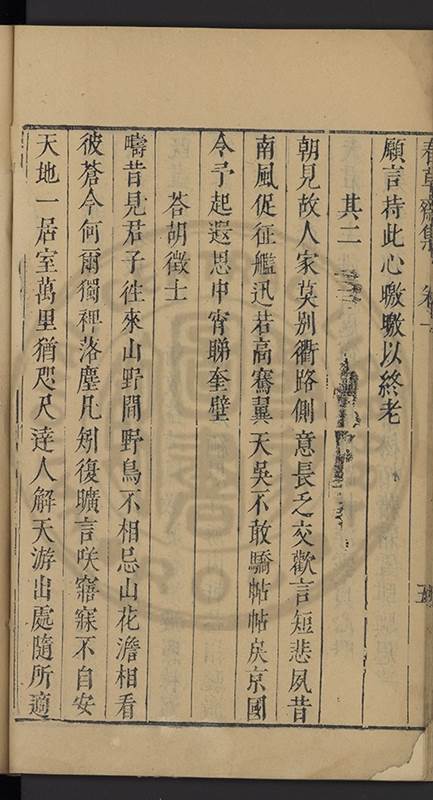 春草齋集 卷一
五
願言持此心皦皦以終老
其二
朝見故人家莫別衢路側意長乏交歡言短悲夙昔
南風促征艦迅若高騫翼天吳不敢驕帖帖矣京國
令予起遐思中宵睇奎壁
荅胡徵士
疇昔見君子徃來山野間野鳥不相忌山花澹相看
彼蒼今何爾獨裨落塵凡矧復曠言咲寤寐不自安
天地一居室萬里猶咫尺達人解天游出處隨所適